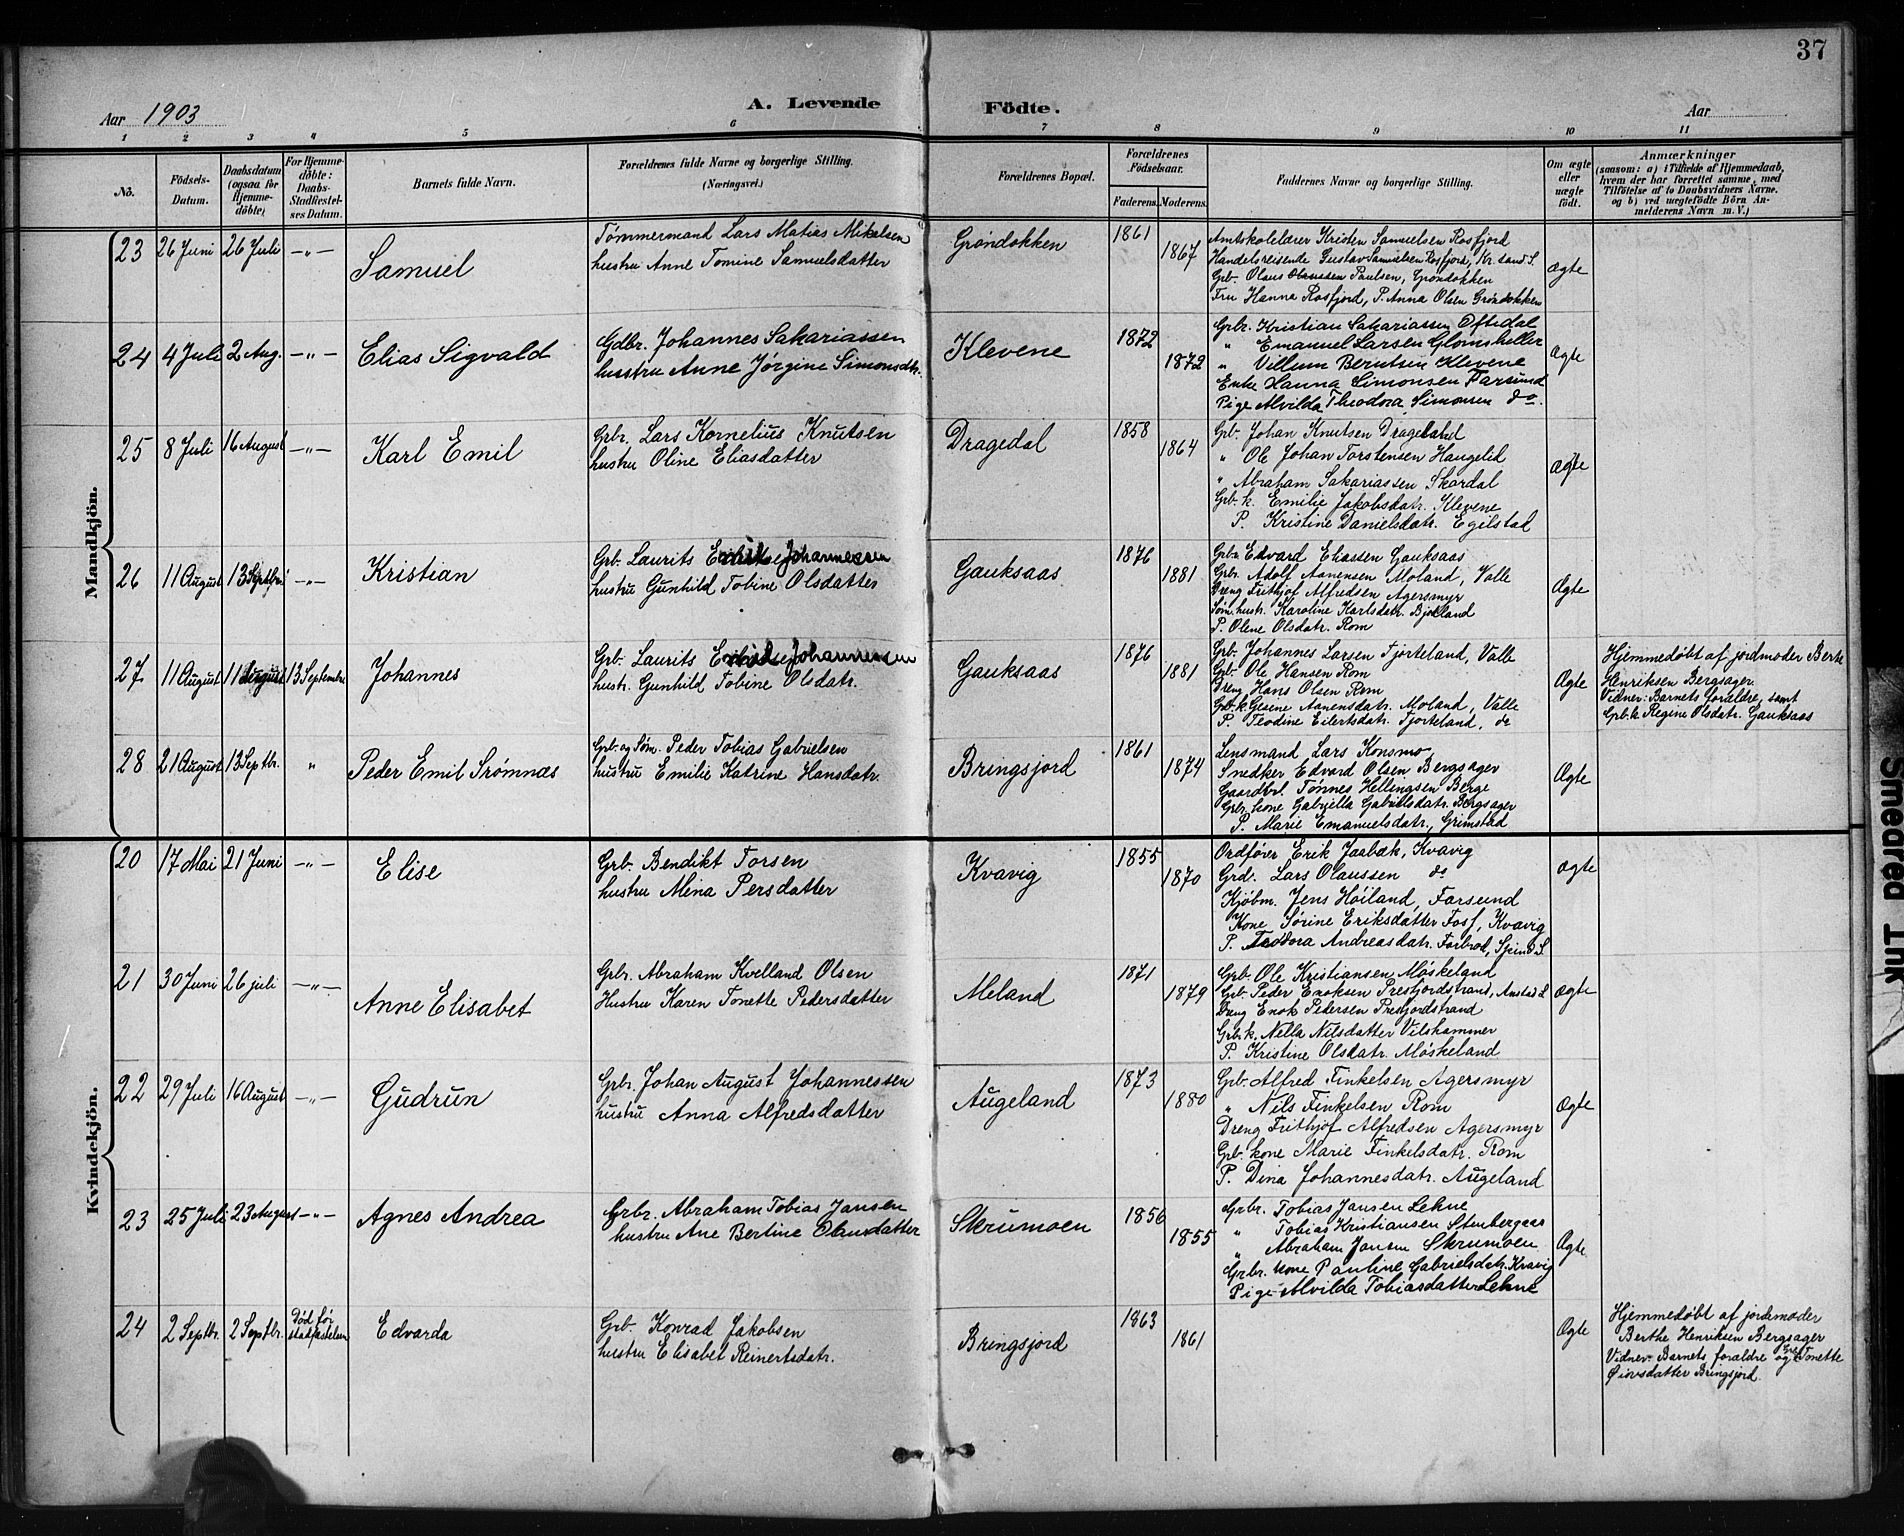 37
Aar 1903 A. Levende Födte. Aar
1 2 3 4 5 6 7 8 9 10 11
No. Födsels-Datum. Daabsdatum (ogsaa for Hjemme-döbte) For Hjemme-döbte: Daabs-Stadfæstel-ses Datum. Barnets fulde Navn. Forældrenes fulde Navne og borgerlige Stilling. (Næringsvei.) Forældrenes Bopæl. Forældrenes Födselsaar. Faderens. Moderens. Faddernes Navne og borgerlige Stilling. Om ægte eller uægte födt. Anmærkninger (saasom: a) i Tilfælde af Hjemmedaab, hvem der har forrettet samme, med Tilföielse af to Daabsvidners Navne. og b) ved uægtefödte Börn An-melderens Navn m. V.)
Mandkjön.
23 26 Juni 26 Juli -„- Samuel Tømmermand Lars Matias Mikelsen Grøndokken 1861 1867 Amtskolelærer Kristen Samuelsen Rosfjord Ægte
hustru Anne Tomine Samuelsdatter Handelsreisende Gustav Samuelsen Rosfjord, Kr.sand S.
Grb. Olaus Olaussen Paulsen, Grøndokken
Fru Hanna Rosfjord, P. Anna Olsen Grøndokken
24 4 Juli 2 Aug. -„- Elias Sigvald Gdbr. Johannes Sakariassen Klevene 1872 1872 Grbr. Kristian Sakariassen Oftedal Ægte
hustru Anne Jørgine Simonsdtr. „ Emanuel Larsen Glomsheller
„ Villum Berntsen Klevene
Enke Hanna Simonsen Farsund
Pige Alvilda Theodora Simonsen do.
25 8 Juli 16 August -„- Karl Emil Grbr. Lars Kornelius Knutsen Dragedal 1858 1864 Grb. Johan Knutsen Drageland Ægte
hustru Oline Eliasdatter „ Ole Johan Torstensen Haugelid
„ Abraham Sakariassen Skardal
Grb. k. Emilie Jakobsdatr. Klevene
P. Kristine Danielsdatr. Egilstad
26 11 August 13 Septbr. -„- Kristian Grb. Laurits Johannessen Gauksaas 1876 1881 Grbr Edvard Eliassen Gauksaas Ægte
hustru Gunhild Tobine Olsdatter Grbr. Adolf Aanensen Moland, Valle
Dreng Frithjof Alfredsen Agersmyr
Søm. hustr. Karoline Karlsdatr. Bjelland
P. Olene Olsdatr. Rom
27 11 August 11 August 13 Septembr Johannes Grb. Laurits Johannessen Gauksaas 1876 1881 Grb. Johannes Larsen Fjorteland, Valle Ægte Hjemmedøbt af jordmoder Berte
hustr. Gunhild Tobine Olsdatr. Grb. Ole Hansen Rom Henriksen Bergsager.
Dreng Hans Olsen Rom Vidner: Barnets forældre, samt
Grb. k Gesine Aanensdatr. Moland, Valle Grb. k. Regine Olsdatr. Gauksaas
P. Teodine Eilertsdatr. Fjorteland, do
28 21 August 13 Septbr. „ Peder Emil Srømnæs Grb. og Søm. Peder Tobias Gabrielsen Bringsjord 1861 1874 Lensmand Lars Konsmo Ægte
hustru Emilie Katrine Hansdatr. Snedker Edvard Olsen Bergsager
Gaardbr. Tønnes Hellingsen Berge
Grbr. kone Gabriella Gabrielsdatr. Bergsager
P. Marie Emanuelsdatr, Grimstad
Kvindekjön.
20 17 Mai 21 Juni -„- Elise Grb. Bendikt Torsen Kvavig 1855 1870 Ordfører Erik Jaabæk, Kvavig Ægte
hustru Mena Persdatter Grd. Lars Olaussen do
Kjøbm. Jens Høiland, Farsund
Kone Sørine Eriksdatter Foss, Kvavig
P. Teodora Andreasdatr. Forbrod, Spind S.
21 30 Juni 26 juli -„- Anne Elisabet Grbr. Abraham Kvelland Olsen Meland 1871 1879 Grb. Ole Kristiansen Møskeland Ægte
Hustru Karen Tonette Pedersdatter Grb. Peder Enoksen Presfjordstrand, Austad S.
Dreng Enok Pedersen Presfjordstrand
Grb. k. Nella Nilsdatter Vilshammer
P. Kristine Olsdatr. Møskeland
22 29 Juli 16 August -„- Gudrun Grbr. Johan August Johannessen Augeland 1873 1880 Grb. Alfred Finkelsen Agersmyr Ægte
hustru Anna Alfredsdatter „ Nils Finkelsen Rom
Dreng Frithjof Alfredsen Agersmyr
Grb. kone Marie Finkelsdatr. Rom
P. Dina Johannesdatr. Augeland
23 25 Juli 23 August -„- Agnes Andrea Grbr. Abraham Tobias Jansen Skrumoen 1856 1855 Grbr. Tobias Jansen Lehne Ægte
hustru Ane Bertine Olausdatter „ Tobias Kristiansen Stenbergaas
„ Abraham Jansen Skrumoen
Grbr. kone Pauline Gabrielsdatr. Kvavig
Pige Alvilda Tobiasdatter Lehne
24 2 Septbr. 2 Septbr. Død før stadfæstelsen Edvarda Grb. Konrad Jakobsen Bringsjord 1863 1861 Ægte Hjemmedøbt af jordmoder
hustru Elisabet Reinertsdatr. Berthe Henriksen Bergsager
Vidner: Barnets forældre og Grd. Tonette
Øiovsdatter Bringsjord.
Smeared Ink